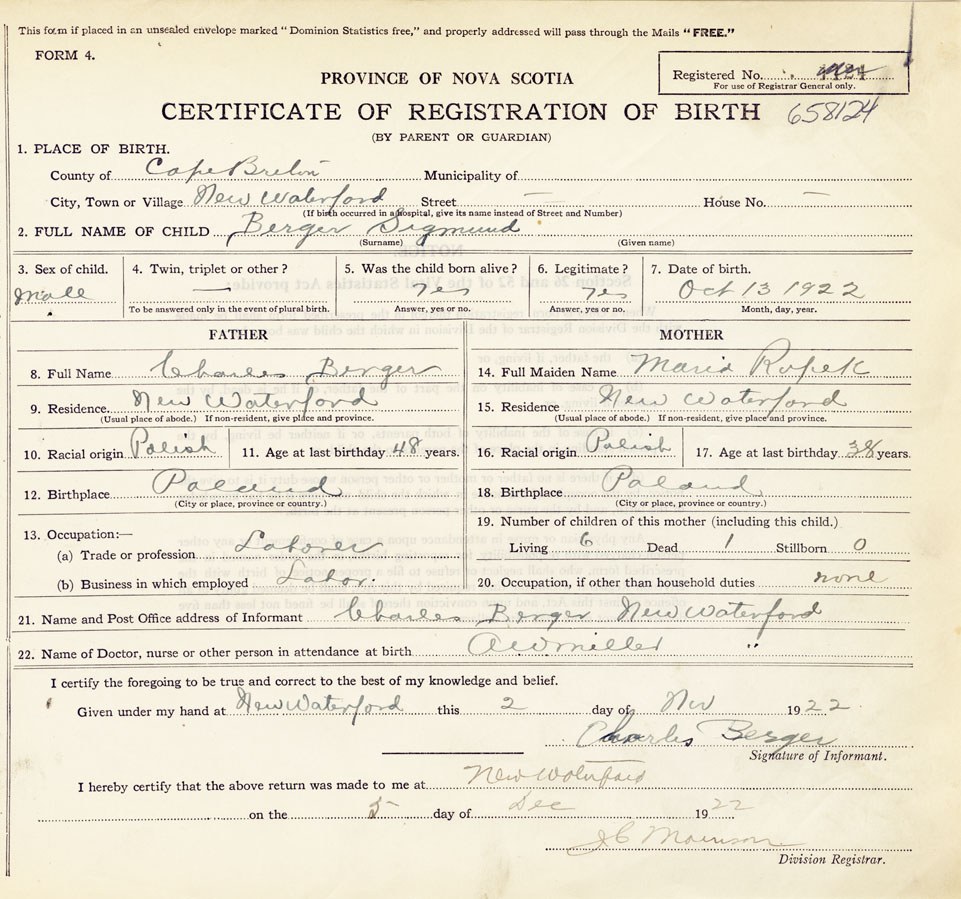 This form if placed in an unsealed envelope marked "Dominion Statistics free," and properly addressed will pass through the Mails "FREE."
FORM 4.
Registered No.
For use of Registrar General only.
PROVINCE OF NOVA SCOTIA
CERTIFICATE OF REGISTRATION OF BIRTH 658124
(BY PARENT OR GUARDIAN)
1. PLACE OF BIRTH.
County of Cape Breton Municipality of
City, Town or Village New Waterford Street — House No. —
(If birth occurred in a hospital, give its name instead of Street and Number)
2. FULL NAME OF CHILD Berger Sigmund
(Surname) (Given name)
3. Sex of child. 4. Twin, triplet or other? 5. Was the child born alive? 6. Legitimate? 7. Date of birth.
Male — Yes Yes Oct 13 1922
To be answered only in the event of plural birth. Answer, yes or no. Answer, yes or no. Month, day, year.
FATHER
8. Full Name Charles Berger
9. Residence. New Waterford
(Usual place of abode.) If non-resident, give place and province.
10. Racial origin Polish 11. Age at last birthday 48 years.
12. Birthplace Poland
(City or place, province or country.)
13. Occupation:—
(a) Trade or profession Laborer
(b) Business in which employed Labor.
MOTHER
14. Full Maiden Name Maria Rupek
15. Residence New Waterford
(Usual place of abode.) If non-resident, give place and province.
16. Racial origin Polish 17. Age at last birthday 38 years.
18. Birthplace Poland
(City or place, province or country.)
19. Number of children of this mother (including this child.)
Living 6 Dead 1 Stillborn 0
20. Occupation, if other than household duties none
21. Name and Post Office address of Informant Charles Berger New Waterford
22. Name of Doctor, nurse or other person in attendance at birth A W Miller "
I certify the foregoing to be true and correct to the best of my knowledge and belief.
Given under my hand at New Waterford this 2 day of Nov 1922
Charles Berger
Signature of Informant.
I hereby certify that the above return was made to me at New Waterford
on the 5 day of Dec 1922
J C Morrison
Division Registrar.